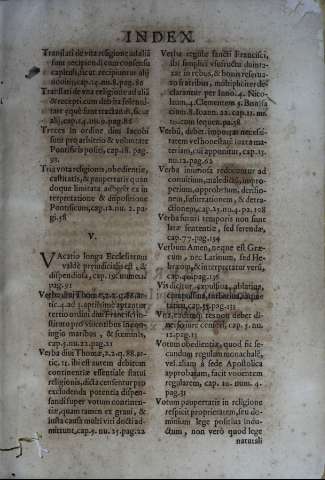 INDEX
Translati de vita religione ad aliã
sunt recipiendi cum consensu
capituli, sicut recipiuntur alij
nouicij, cap.14. nu.12. pag.86
Translati de vita religione ad aliã
& recepti cum debita solenni-
tate eque sunt tractandi, sicut
alij, cap.14. nu.9. pag.85
Treces in ordine diui Iacobi
sunt pro arbitrio & voluntate
Pontificis positi, cap.18. pag.
98.
Tria vota religionis, obedientiæ,
castitatis, & paupertatis quan
doque limitata adherēt ex in
terpretatione & dispositione
Pontificum, cap.12. nu. 2. pa-
gi.58
V.
VAcatio longa Ecclesiarum
valde periudicialis est, &
dispendiosa, cap.15
pag.91
Verba diui Thomæ, 2.2. q.186. ar-
tic.4. ad 3. aptime
tertio ordini diui Francisci in-
stituto pro viuentibus in con-
iugio maribus, & fœminis,
cap.3. nu.22. pag.21
Verba diui Thomæ, 2.2. q. 88. ar-
tic. 11. ibi est autem debitum
continentiæ essentiale statui
religionis, dicta censentur pro
excludenda potentia dispen-
sandi super votum continen-
tiæ, quam tamen ex graui, &
iusta causa multi viri docti ad-
mittunt, cap.5. nu.25. pag.22
Verba regulæ sancti Francisci,
ibi simplici vsufructu dunta-
xat in rebus, & bonis reserua-
to fratribus, multipliciter de-
clarantur per Inno.4. Nico-
laum, 4. Clementem 5. Bonifa
cium 8. Ioann. 22. cap.11. nu.
10. cum sequen. pa.58
Verbũ, debet, importat necessi-
tatem vel honestatē iuxta ma-
teriam, cui apponitur, cap.13.
nu.12. pag.62
Verba iniuriosa reducuntur ad
conuicium, maledictũ, impro-
perium, approbrium, derisio-
nem, susurrationem, & detra-
ctionem, cap.25. nu.4. p2.108
Verba futuri temporis non sunt
latæ sententiæ, sed ferendæ,
cap.77. pag.154
Verbum Amen, neque est Græ-
cum, nec Latinum, sed He-
bræum, & interpretatur verũ,
cap.40. pag.136
Vis dicitur, expulsiua, ablatiua,
compulsiua, turbatiua, inquie-
Vita, eademq; res non debet di-
uerso iure censeri, cap.5. nu.
11. pag.13
Votum obedientiæ, quod fit se-
cundum regulam monachalē,
vel aliam à sede Apostolica
approbatam, facit vouentem
regularem, cap. 10. num. 4.
pag.31
Votum paupertatis in religione
respicit proprietatem, seu do-
minium lege positiua indu-
ctum, non verò quod lege
naturali